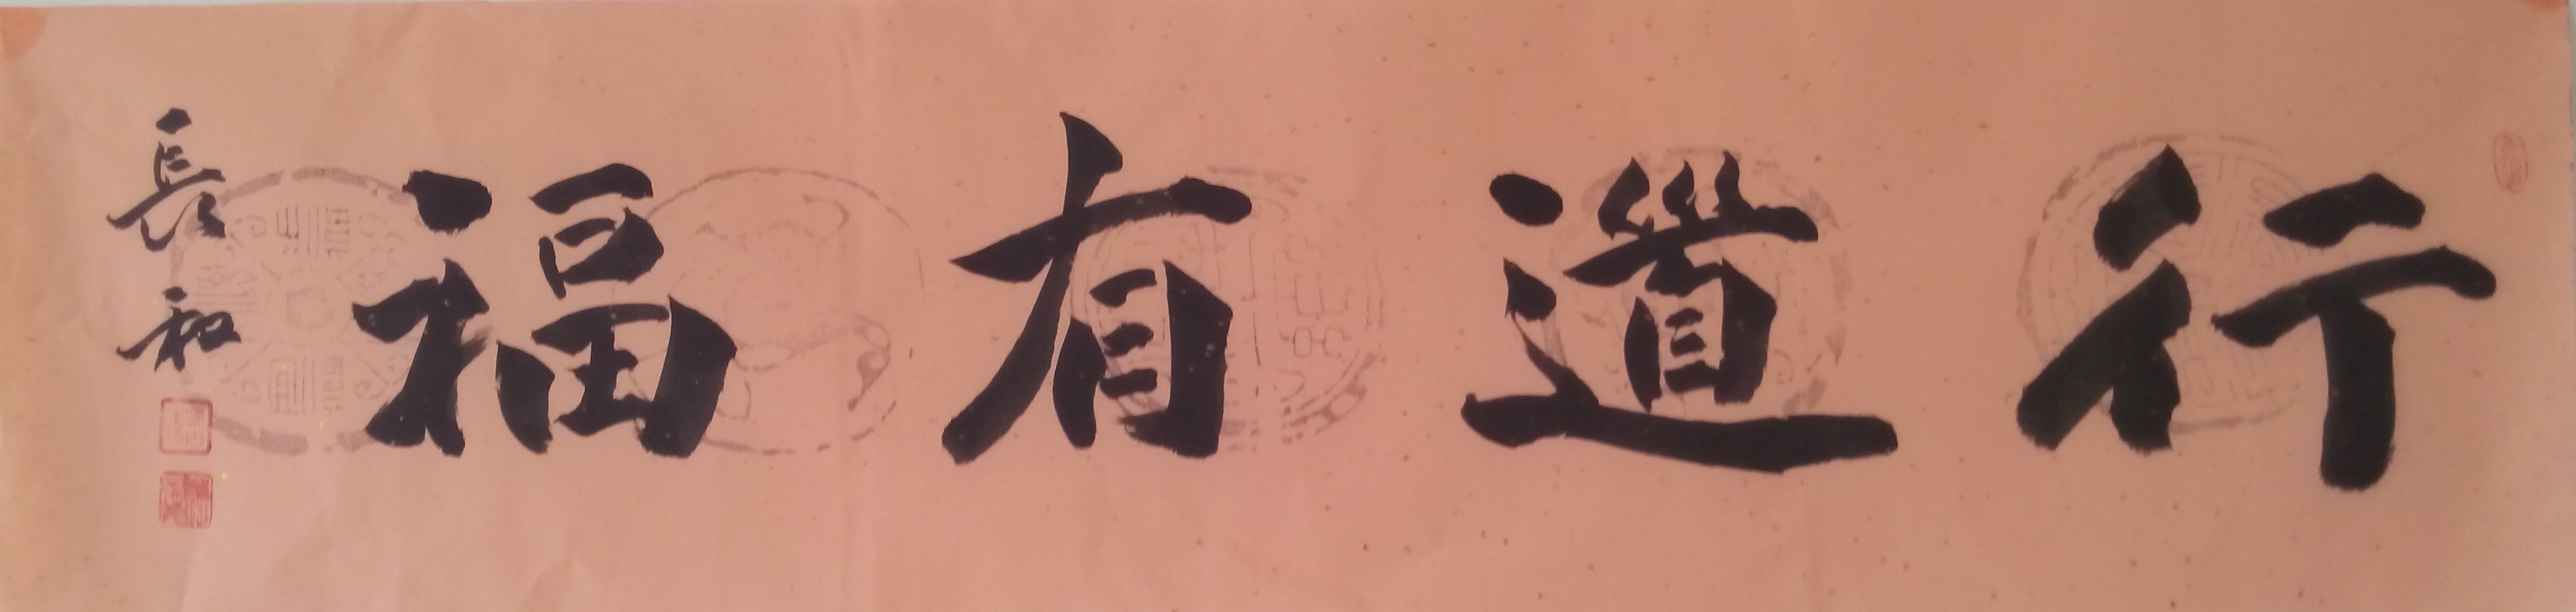 行道有福
長和